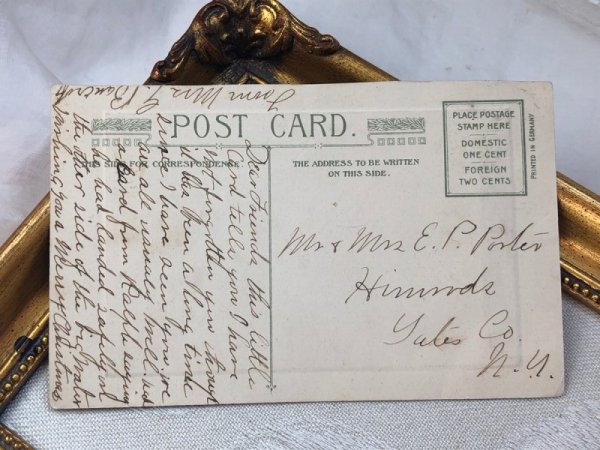 POST CARD.
THIS SIDE FOR CORRESPONDENCE.
THE ADDRESS TO BE WRITTEN
ON THIS SIDE.
PLACE POSTAGE
STAMP HERE
DOMESTIC
ONE CENT
FOREIGN
TWO CENTS
PRINTED IN GERMANY
Mr & Mrs E. P. Porter
Himrods
Yates Co
N.Y.
Dear friends this little
Card tells you I have
not forgotten you though
it has been a long time
since I have seen you. we
are all usually well. had
Card from Ralph saying
he had landed safely on
the other side of the
Wishing you a Merry Christmas
From Mrs J. Bancroft